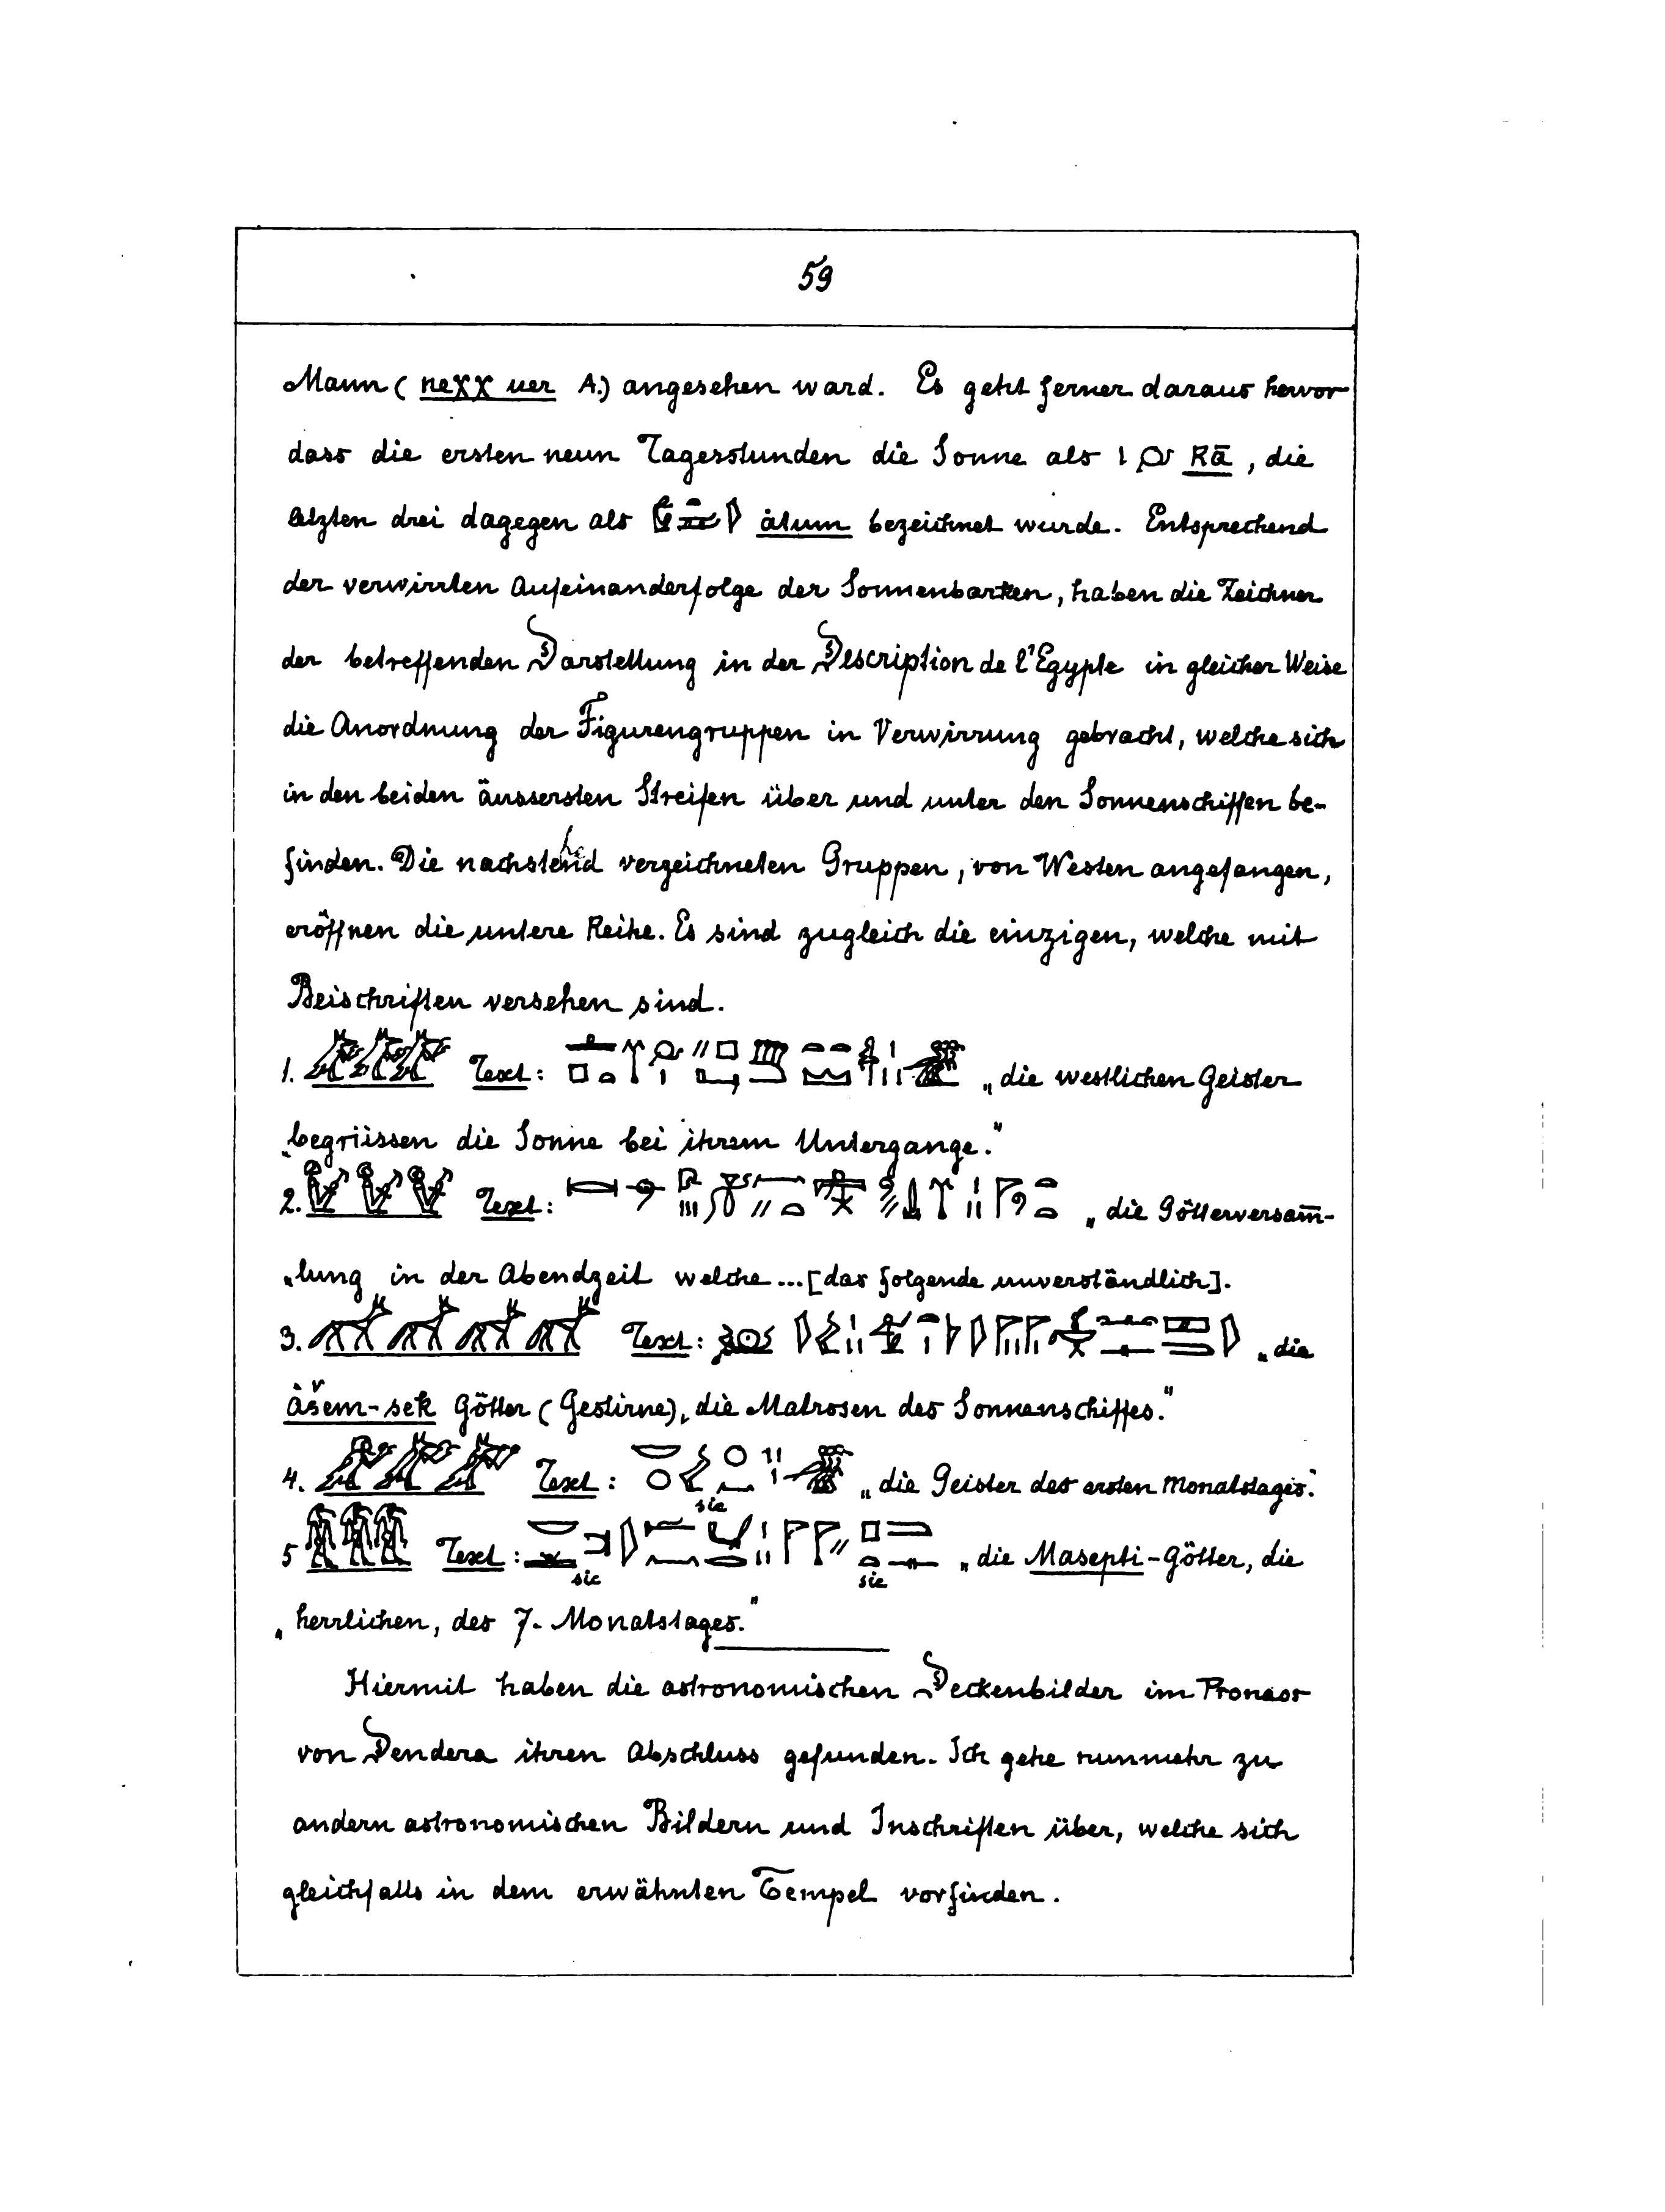 59
Mann (neχχ uer A.) angesehen ward. Es geht ferner daraus hervor
dass die ersten neun Tagesstunden die Sonne als Rā, die
letzten drei dagegen als ȧtum bezeichnet wurde. Entsprechend
der verwirrten Aufeinanderfolge der Sonnenbarken, haben die Zeichner
der betreffenden Darstellung in der Description de l'Egypte in gleicher Weise
die Anordnung der Figurengruppen in Verwirrung gebracht, welche sich
in den beiden äussersten Streifen über und unter den Sonnenschiffen be-
finden. Die nachstehend verzeichneten Gruppen, von Westen angefangen,
eröffnen die untere Reihe. Es sind zugleich die einzigen, welche mit
Beischriften versehen sind.
1. Text: „die westlichen Geister
„begrüssen die Sonne bei ihrem Untergange."
2. Text: „die Götterversam̅-
„lung in der Abendzeit welche...[das folgende unverständlich].
3. Text: „die
ȧšem-sek Götter (Gestirne), die Matrosen des Sonnenschiffes."
4. Text: „die Geister des ersten Monatstages."
sic
5 Text: „die Masepti-Götter, die
sic sic
„herrlichen, des 7. Monatstages."
Hiermit haben die astronomischen Deckenbilder im Pronaos
von Dendera ihren Abschluss gefunden. Ich gehe nunmehr zu
andern astronomischen Bildern und Inschriften über, welche sich
gleichfalls in dem erwähnten Tempel vorfinden.